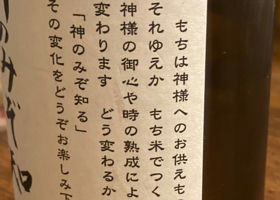 もちは神様へのお供えも
それゆえか もち米でつく
神様の御心や時の熟成によ
変わります どう変わるか
「神のみぞ知る」
その変化をどうぞお楽しみ下
のみぞ知